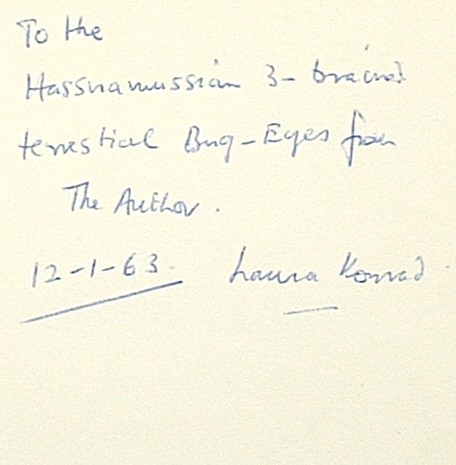 To the
Hassnamussian 3-brained
terrestial Bug-Eyes from
The Author.
12-1-63. Laura Konrad.